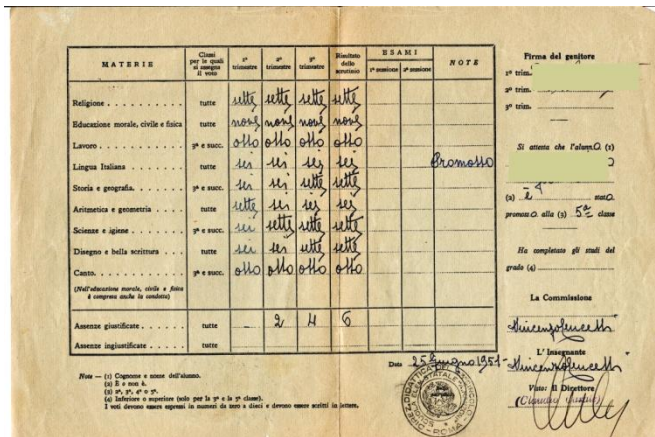 MATERIE Classi per le quali si assegna il voto 1° trimestre 2° trimestre 3° trimestre Risultato dello scrutinio ESAMI 1ª sessione 2ª sessione NOTE
Religione . . . . . . . . . tutte sette sette sette sette
Educazione morale, civile e fisica tutte nove nove nove nove
Lavoro . . . . . . . . . . 3ª e succ. otto otto otto otto
Lingua Italiana . . . . . . tutte sei sei sei sei Promosso
Storia e geografia. . . . . . 3ª e succ. sei sei sette sette
Aritmetica e geometria . . . tutte sette sei sei sei
Scienze e igiene . . . . . . 3ª e succ. sei sette sette sette
Disegno e bella scrittura . . . tutte sei sei sette sette
Canto. . . . . . . . . . . 3ª e succ. otto otto otto otto
(Nell'educazione morale, civile e fisica
è compresa anche la condotta)
Assenze giustificate . . . . . tutte - 2 4 6
Assenze ingiustificate . . . . tutte
Note — (1) Cognome e nome dell'alunno.
(2) È o non è.
(3) 2ª, 3ª, 4ª o 5ª.
(4) Inferiore o superiore (solo per la 3ª e la 5ª classe).
I voti devono essere espressi in numeri da zero a dieci e devono essere scritti in lettere.
Data 25 giugno 1951
ROMA
Firma del genitore
1° trim.
2° trim.
3° trim.
Si attesta che l'alunno (1)
(2) è stato
promosso alla (3) 5ª classe
Ha completato gli studi del
grado (4)
La Commissione
L'Insegnante
Visto: Il Direttore